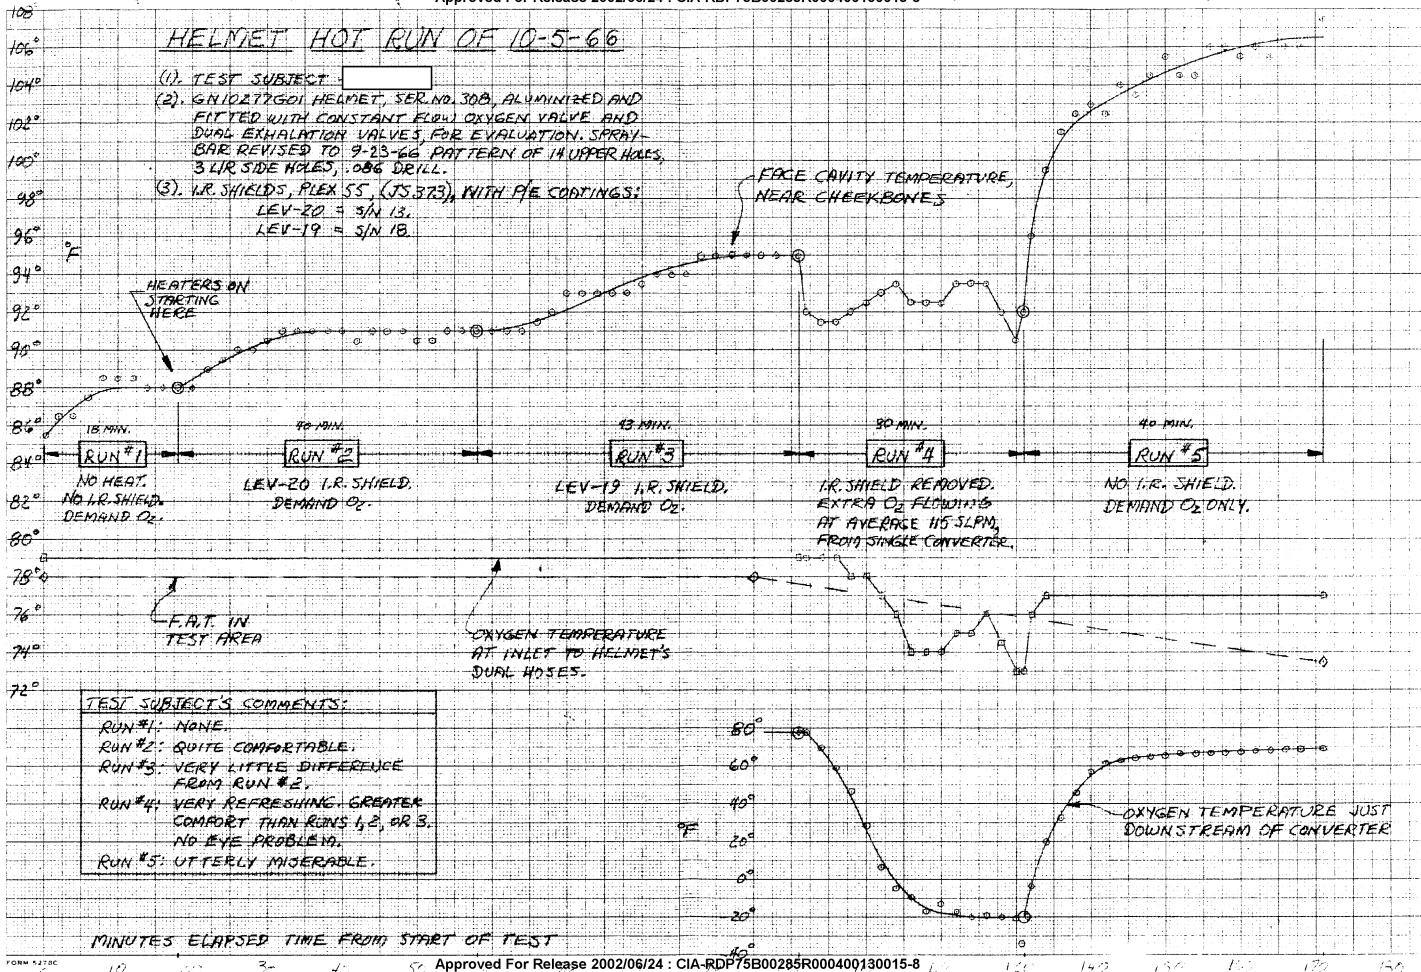 Approved For Release 2002/06/24 : CIA-RDP75B00285R000400130015-8
HELMET HOT RUN OF 10-5-66
(1). TEST SUBJECT -
(2). GN10277G01 HELMET, SER. NO. 308, ALUMINIZED AND
FITTED WITH CONSTANT FLOW OXYGEN VALVE AND
DUAL EXHALATION VALVES, FOR EVALUATION. SPRAY-
BAR REVISED TO 9-23-66 PATTERN OF 14 UPPER HOLES,
3 L/R SIDE HOLES, .086 DRILL.
(3). I.R. SHIELDS, PLEX 55, (JS373), WITH P/E COATINGS:
LEV-20 = S/N 13.
LEV-19 = S/N 18.
108
106°
104°
102°
100°
98°
96°
°F
94°
92°
90°
88°
86°
84°
82°
80°
78°
76°
74°
72°
FACE CAVITY TEMPERATURE,
NEAR CHEEKBONES
HEATERS ON
STARTING
HERE
18 MIN.
RUN #1
NO HEAT.
NO I.R. SHIELD.
DEMAND O2.
40 MIN.
RUN #2
LEV-20 I.R. SHIELD.
DEMAND O2.
43 MIN.
RUN #3
LEV-19 I.R. SHIELD.
DEMAND O2.
30 MIN.
RUN #4
I.R. SHIELD REMOVED.
EXTRA O2 FLOWING
AT AVERAGE 115 SLPM,
FROM SINGLE CONVERTER.
40 MIN.
RUN #5
NO I.R. SHIELD.
DEMAND O2 ONLY.
F.A.T. IN
TEST AREA
OXYGEN TEMPERATURE
AT INLET TO HELMET'S
DUAL HOSES.
TEST SUBJECT'S COMMENTS:
RUN #1: NONE.
RUN #2: QUITE COMFORTABLE.
RUN #3: VERY LITTLE DIFFERENCE
FROM RUN #2.
RUN #4: VERY REFRESHING. GREATER
COMFORT THAN RUNS 1, 2, OR 3.
NO EYE PROBLEM.
RUN #5: UTTERLY MISERABLE.
80°
60°
40°
°F
20°
0°
-20°
-40°
OXYGEN TEMPERATURE JUST
DOWNSTREAM OF CONVERTER
MINUTES ELAPSED TIME FROM START OF TEST
FORM 5278C
Approved For Release 2002/06/24 : CIA-RDP75B00285R000400130015-8